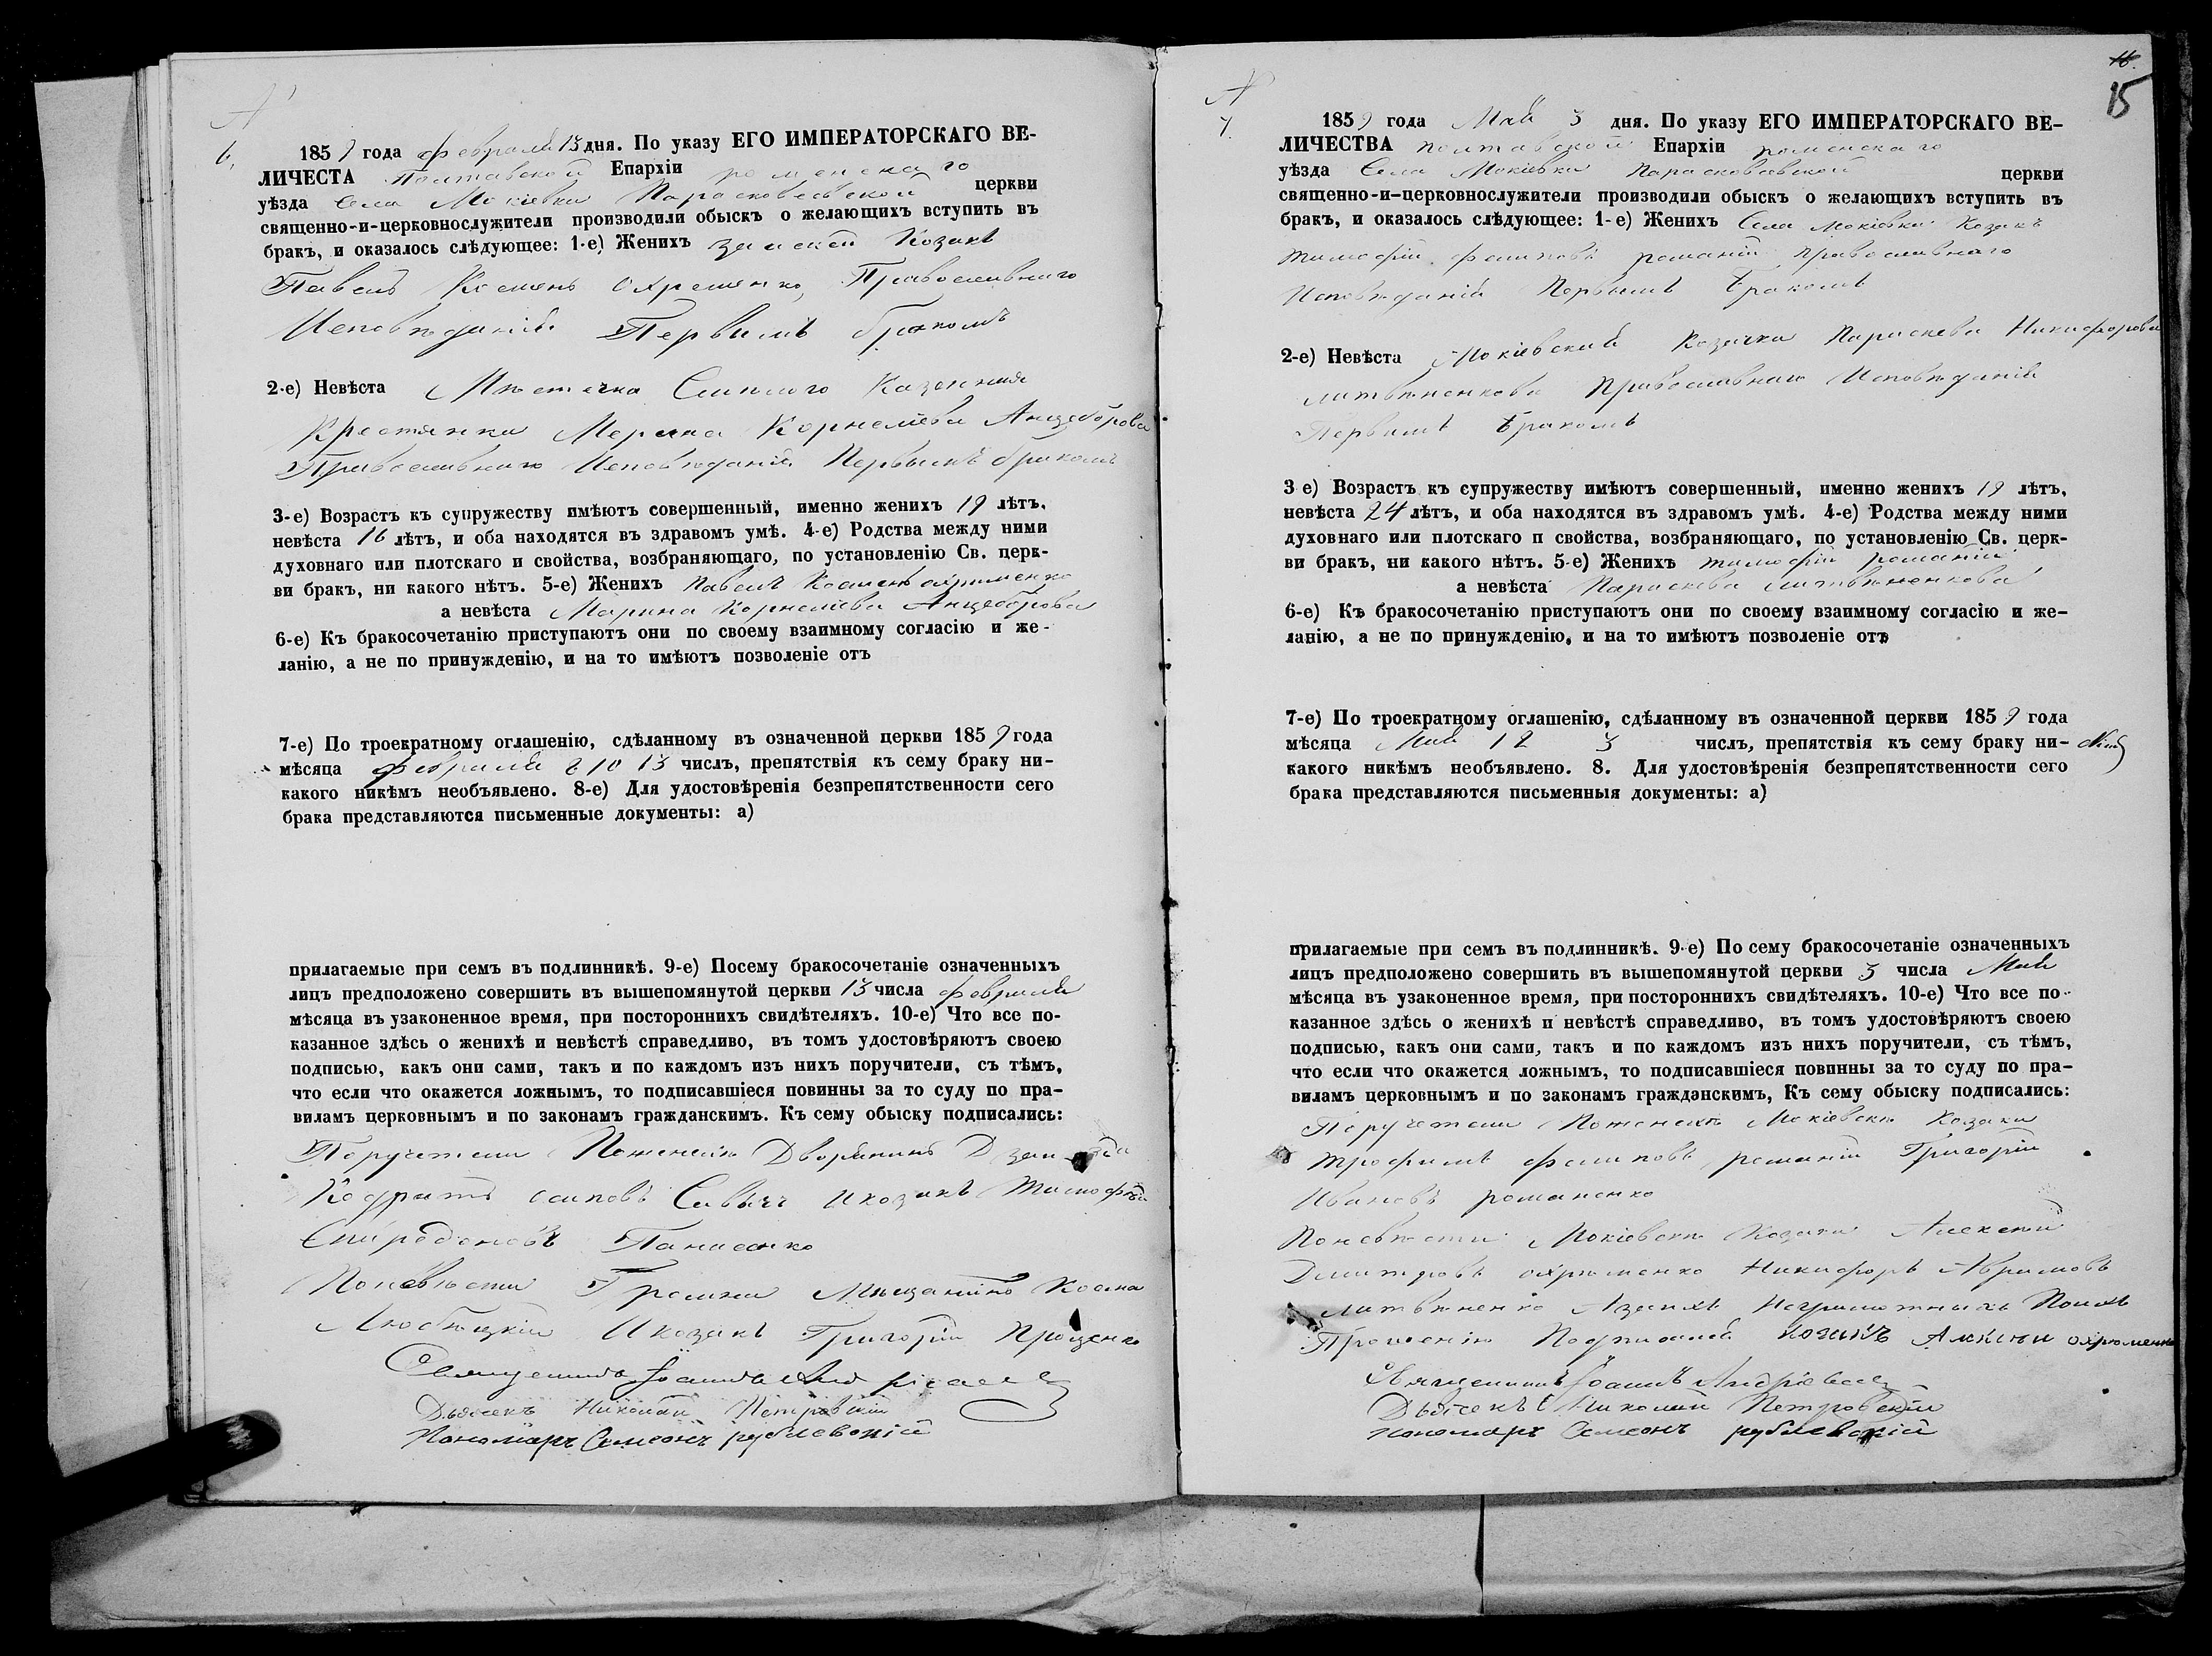 №
6.
1859 года Февраля 13 дня. По указу ЕГО ИМПЕРАТОРСКАГО ВЕ-
ЛИЧЕСТА Полтавской Епархіи роменскаго
уѣзда Села Мокіевки Парасковеевской церкви
священно-и-церковнослужители производили обыскъ о желающихъ вступить въ
бракъ, и оказалось слѣдующее: 1-е) Женихъ Козакъ
Павелъ Охременко, Православнаго
Исповѣданія Первымъ бракомъ
2-е) Невѣста Мѣстечка Смѣлого Казенная
Крестянка Марина Корнелиева
Православнаго Исповѣданія Первымъ бракомъ
3-е) Возрастъ къ супружеству имѣютъ совершенный, именно женихъ 19 лѣтъ,
невѣста 16 лѣтъ, и оба находятся въ здравомъ умѣ. 4-е) Родства между ними
духовнаго или плотскаго и свойства, возбраняющаго, по установленію Св. церк-
ви бракъ, ни какого нѣтъ. 5-е) Женихъ Павелъ
а невѣста Марина Корнелиева
6-е) Къ бракосочетанію приступаютъ они по своему взаимному согласію и же-
ланію, а не по принужденію, и на то имѣютъ позволеніе отъ
7-е) По троекратному оглашенію, сдѣланному въ означенной церкви 1859 года
мѣсяца Февраля 8 10 13 числъ, препятствія къ сему браку ни-
какого никѣмъ необъявлено. 8-е) Для удостовѣренія безпрепятственности сего
брака представляются письменные документы: а)
прилагаемые при семъ въ подлинникѣ. 9-е) Посему бракосочетаніе означенныхъ
лицъ предположено совершить въ вышепомянутой церкви 13 числа Февраля
мѣсяца въ узаконенное время, при постороннихъ свидѣтеляхъ. 10-е) Что все по-
казанное здѣсь о женихѣ и невѣстѣ справедливо, въ томъ удостовѣряютъ своею
подписью, какъ они сами, такъ и по каждомъ изъ нихъ поручители, съ тѣмъ,
что если что окажется ложнымъ, то подписавшіеся повинны за то суду по пра-
виламъ церковнымъ и по законамъ гражданскимъ. Къ сему обыску подписались:
Поручетели Поженихѣ Дворянинъ
Кодратъ осиповъ Савичъ Икозакъ Тимофѣй
Спиредоновъ Панасенко
Поневѣсти Мѣщанинъ Косма
Икозакъ Григорій Проценко
Священникъ Іоаннъ
Дьячекъ Николай Петровскій
Пономарь Симеонъ рублевскій
№
7.
16.
15
1859 года Мая 3 дня. По указу ЕГО ИМПЕРАТОРСКАГО ВЕ-
ЛИЧЕСТВА полтавской Епархіи роменскаго
уѣзда Села Мокіевки Парасковеевской церкви
священно-и-церковнослужители производили обыскъ о желающихъ вступить въ
бракъ, и оказалось слѣдующее: 1-е) Женихъ Села мокіевки Козакъ
тимофій филиповъ романій православнаго
Исповѣданія Первымъ Бракомъ
2-е) Невѣста Мокіевская Козачка Параскева Никифорова
литвѣненкова Православнаго Исповѣданія
Первымъ Бракомъ
3 е) Возрастъ къ супружеству имѣютъ совершенный, именно женихъ 19 лѣтъ,
невѣста 24 лѣтъ, и оба находятся въ здравомъ умѣ. 4-е) Родства между ними
духовнаго или плотскаго п свойства, возбраняющаго, по установленію Св. церк-
ви бракъ, ни какого нѣтъ. 5-е) Женихъ тимофій романій
а невѣста Параскева литвѣненкова
6-е) Къ бракосочетанію приступаютъ они по своему взаимному согласію и же-
ланію, а не по принужденію, и на то имѣютъ позволеніе отъ
7-е) По троекратному оглашенію, сдѣланному въ означенной церкви 1859 года
мѣсяца Мая 1 2 3 числъ, препятствія къ сему браку ни-
какого никѣмъ необъявлено. 8. Для удостовѣренія безпрепятственности сего
брака представляются письменныя документы: а)
прилагаемые при семъ въ подлинникѣ. 9-е) По сему бракосочетаніе означенныхъ
лицъ предположено совершить въ вышепомянутой церкви 3 числа Мая
мѣсяца въ узаконенное время, при постороннихъ свидѣтеляхъ. 10-е) Что все по-
казанное здѣсь о женихѣ и невѣстѣ справедливо, въ томъ удостовѣряютъ своею
подписью, какъ они сами, такъ и по каждомъ изъ нихъ поручители, съ тѣмъ,
что если что окажется ложнымъ, то подписавшіеся повинны за то суду по пра-
виламъ церковнымъ и по законамъ гражданскимъ, Къ сему обыску подписались:
Поручетели Поженихѣ Мокіевски Козаки
трофимъ филиповъ романій Григорій
Ивановъ романенко
Поневѣсти Мокіевски Козаки Алексій
Дмитровъ охрименко Никифоръ Абрамовъ
литвѣненко Азанихъ Неграмотныхъ Поихъ
Прошенію козакъ охрюменко
Священникъ Іоаннъ Андріевск
Дьячекъ Николай Петровскій
пономарь Симеонъ рублевскій